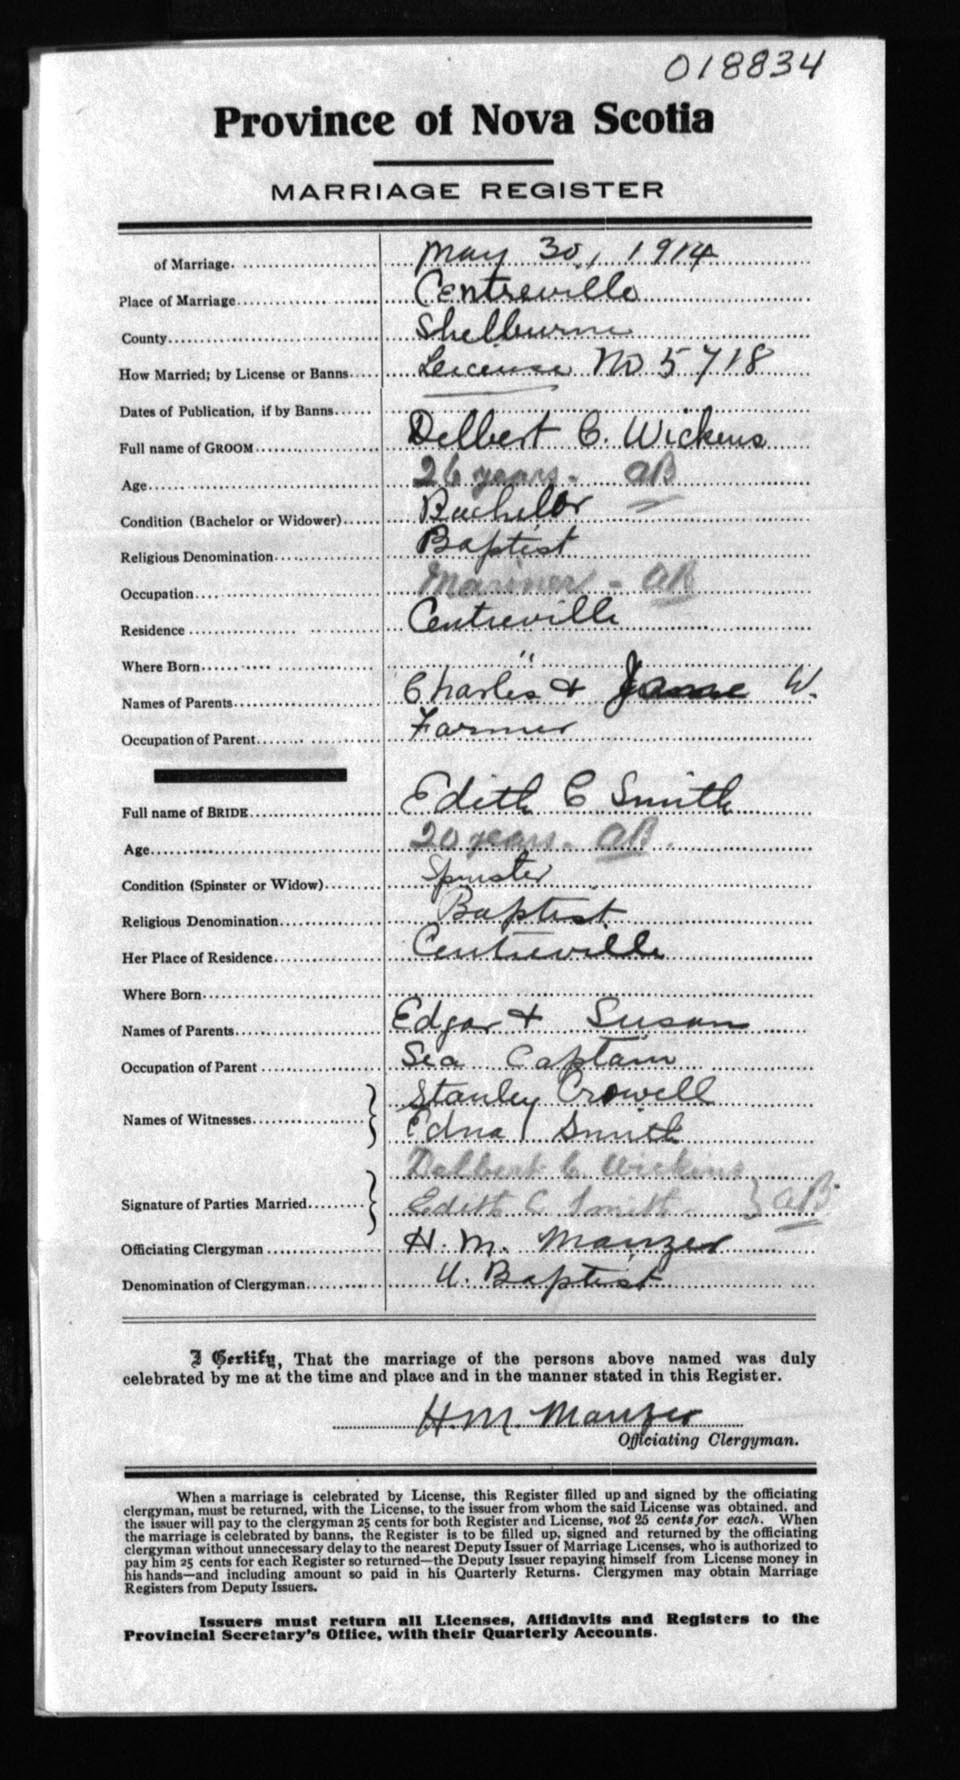 018834
Province of Nova Scotia
MARRIAGE REGISTER
of Marriage. May 30, 1914
Place of Marriage Centreville
County Shelburne
How Married; by License or Banns License No 5718
Dates of Publication, if by Banns
Full name of GROOM Delbert C. Wickens
Age 26 years - AB
Condition (Bachelor or Widower) Bachelor
Religious Denomination Baptist
Occupation Mariner - AB
Residence Centreville
Where Born "
Names of Parents Charles + W.
Occupation of Parent Farmer
Full name of BRIDE Edith C Smith
Age 20 years - AB.
Condition (Spinster or Widow) Spinster
Religious Denomination Baptist
Her Place of Residence Centreville
Where Born
Names of Parents Edgar + Susan
Occupation of Parent Sea Captain
Names of Witnesses Stanley Crowell
Edna Smith
Signature of Parties Married Delbert C. Wickins
Edith C Smith - } AB
Officiating Clergyman H. M. Manzer
Denomination of Clergyman U. Baptist
I Certify, That the marriage of the persons above named was duly
celebrated by me at the time and place and in the manner stated in this Register.
H. M. Manzer
Officiating Clergyman.
When a marriage is celebrated by License, this Register filled up and signed by the officiating
clergyman, must be returned, with the License, to the issuer from whom the said License was obtained, and
the issuer will pay to the clergyman 25 cents for both Register and License, not 25 cents for each. When
the marriage is celebrated by banns, the Register is to be filled up, signed and returned by the officiating
clergyman without unnecessary delay to the nearest Deputy Issuer of Marriage Licenses, who is authorized to
pay him 25 cents for each Register so returned—the Deputy Issuer repaying himself from License money in
his hands—and including amount so paid in his Quarterly Returns. Clergymen may obtain Marriage
Registers from Deputy Issuers.
Issuers must return all Licenses, Affidavits and Registers to the
Provincial Secretary's Office, with their Quarterly Accounts.